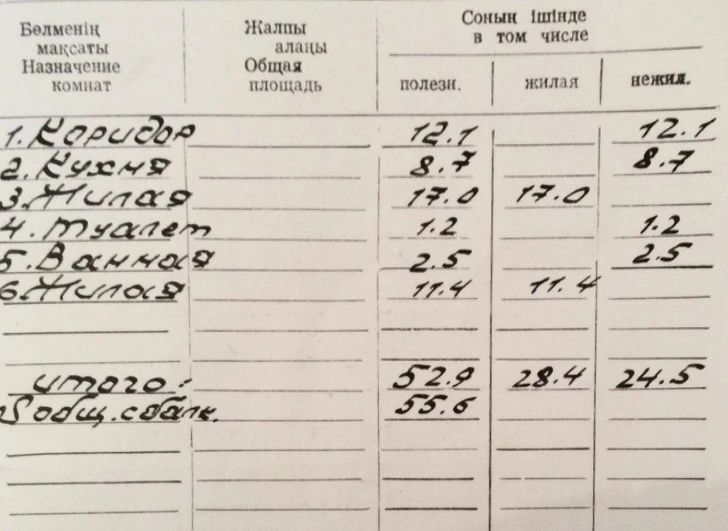 Бөлменің мақсаты Жалпы алаңы Соның ішінде
Назначение комнат Общая площадь в том числе
полезн. жилая нежил.
1. Коридор 12.1 12.1
2. Кухня 8.7 8.7
3. Жилая 17.0 17.0
4. Туалет 1.2 1.2
5. Ванная 2.5 2.5
6. Жилая 11.4 11.4
итого: 52.9 28.4 24.5
S общ. с балк. 55.6